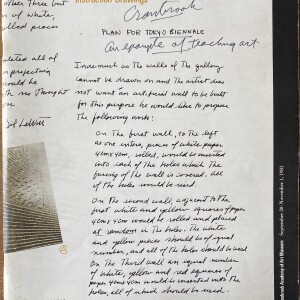 Instruction Drawings
other three but
up of white,
rolled pieces
Cranbrook
PLAN FOR TOKYO BIENNALE
(an example of teaching art
Inasmuch as the walls of the gallery
cannot be drawn on and the artist does
not want an artificial wall to be built
for this purpose he would like to prepare
the following work:
On the first wall, to the left
as one enters, pieces of white paper
4cm x 4cm, rolled, would be inserted
into each of the holes which the
facing of the wall is covered. All
of the holes would be used.
On the second wall, adjacent to the
first white and yellow squares of paper
4cm x 4cm would be rolled and placed
at random in the holes. The white
and yellow pieces should be of equal
number, and all of the holes would be used
On the Third wall an equal number
of white, yellow and red squares of
paper 4cm x 4cm would be inserted into the
holes, all of which should be used.
all of
projecting
would be
no thought
Sol LeWitt
Cranbrook Academy of Art Museum
September 20 - November 1, 1981